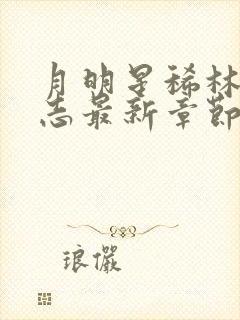 月明星稀林
志最新章節
琅儼